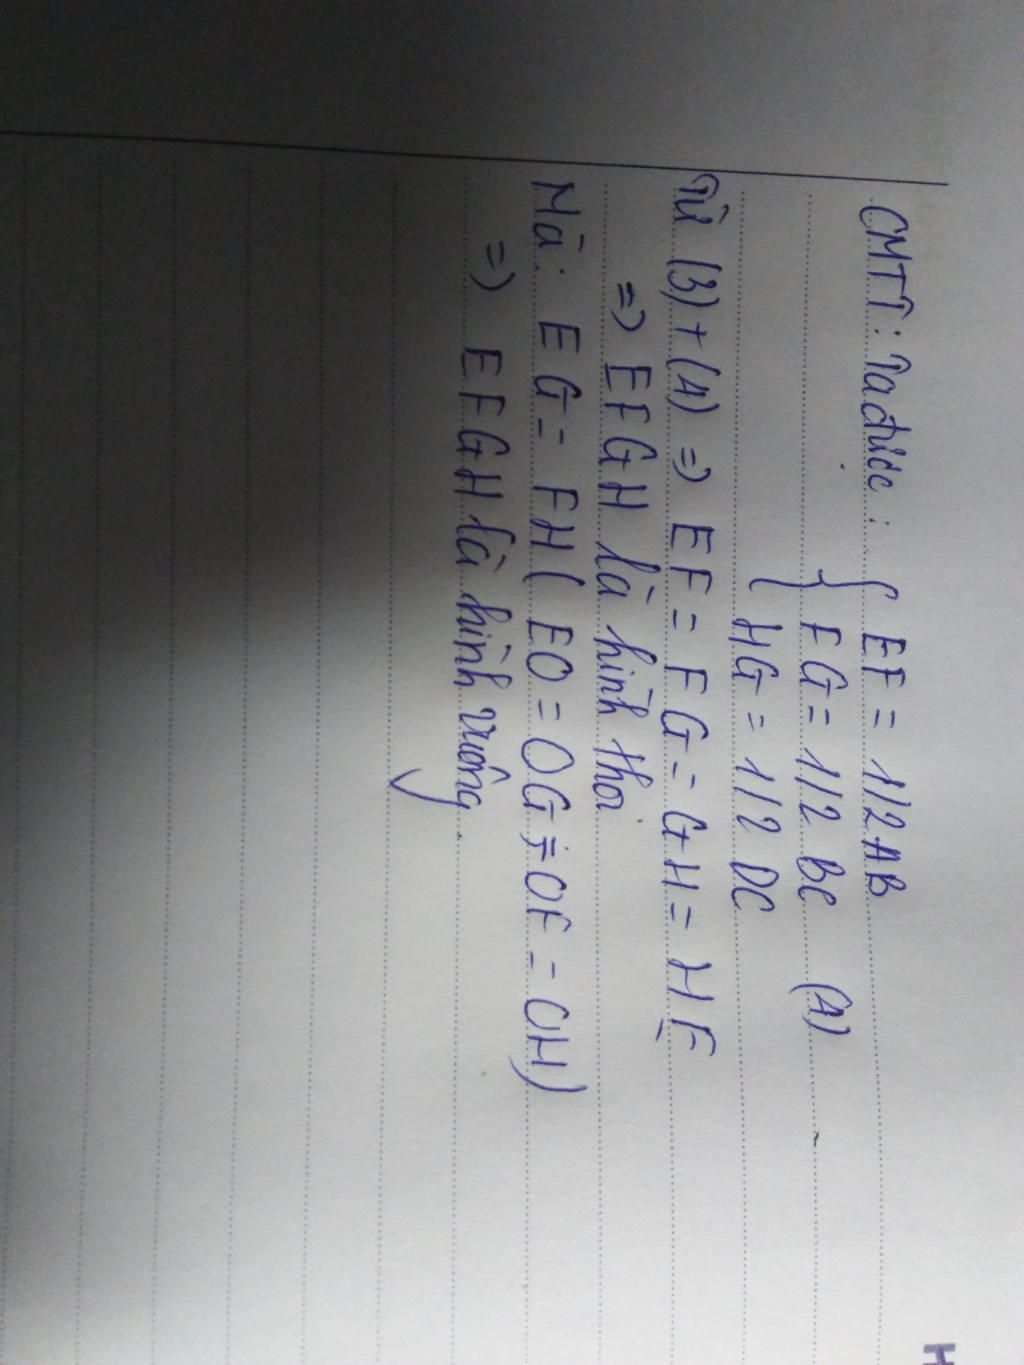 CMTT: Ta được: { EF = 1/2 AB
FG = 1/2 BC (4)
HG = 1/2 DC
Từ (3) + (4) => EF = FG = GH = HE
=> EFGH là hình thoi
Mà: EG = FH ( EO = OG = OF = OH)
=> EFGH là hình vuông.
H